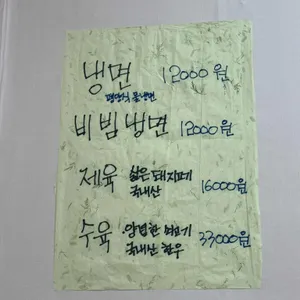 냉면 12000원
평양식 물냉면
비빔냉면 12000원
제육 삶은 돼지고기
국내산 16000원
수육 양념한 소고기
국내산 한우 33000원